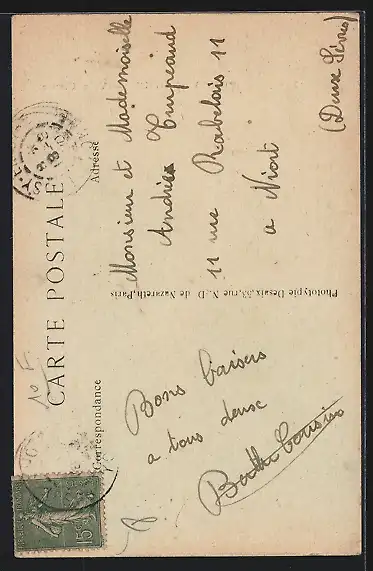 CARTE POSTALE
Correspondance
Adresse
Bons baisers
a tous deuse
Berthe Cousin
Monsieur et Mademoiselle
André Empeaud
11 rue Rabelais 11
a Niort
(Deux Sèvres)
Phototypie Desaix,53,rue N.-D de Nazareth,Paris
10 F
15